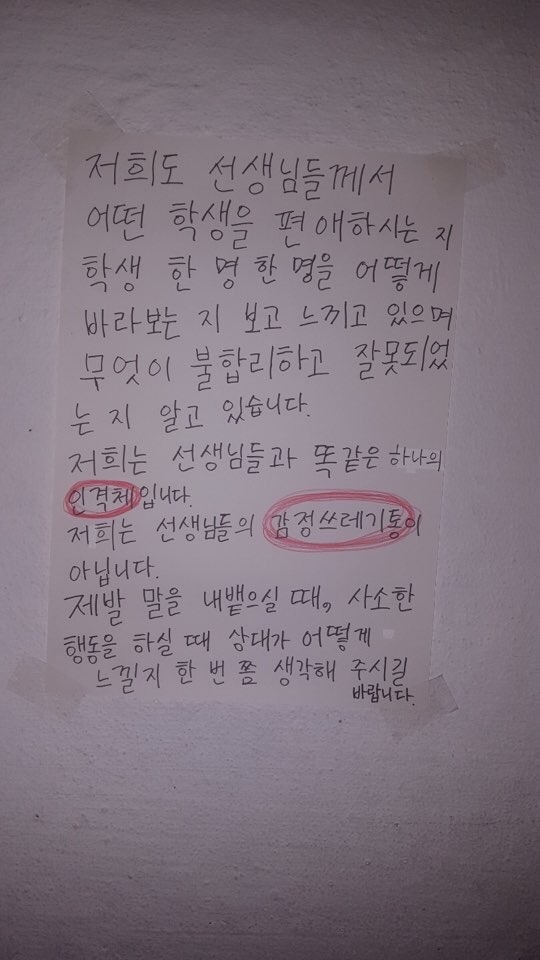 저희도 선생님들께서
어떤 학생을 편애하시는 지
학생 한 명 한 명을 어떻게
바라보는 지 보고 느끼고 있으며
무엇이 불합리하고 잘못되었
는 지 알고 있습니다.
저희는 선생님들과 똑같은 하나의
인격체입니다.
저희는 선생님들의 감정쓰레기통이
아닙니다.
제발 말을 내뱉으실 때, 사소한
행동을 하실 때 상대가 어떻게
느낄지 한 번 쯤 생각해 주시길
바랍니다.